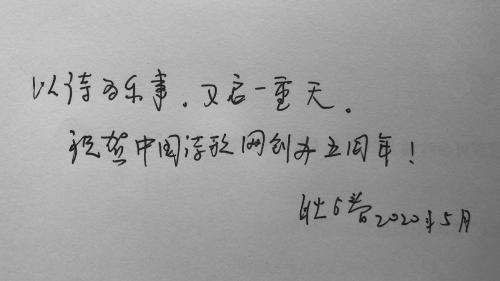 以诗为乐事，又启一重天。
祝贺中国诗歌网创办五周年！
耿占春2020年5月